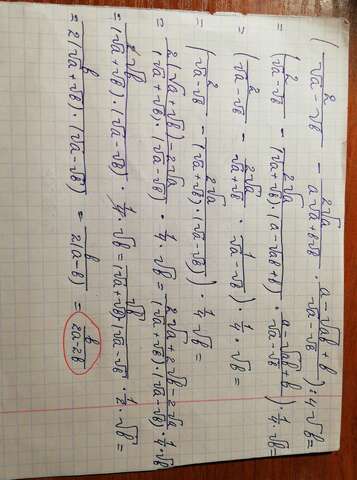 (2/(√a-√b) - 2√a/(a√a+b√b) · (a-√ab+b)/(√a-√b)) : 4√b =
= (2/(√a-√b) - 2√a/((√a+√b)·(a-√ab+b)) · (a-√ab+b)/(√a-√b)) · 1/4 · √b =
= (2/(√a-√b) - 2√a/(√a+√b) · 1/(√a-√b)) · 1/4 · √b =
= (2/(√a-√b) - 2√a/((√a+√b)·(√a-√b))) · 1/4 · √b =
= (2(√a+√b)-2√a)/((√a+√b)·(√a-√b)) · 1/4 · √b = (2√a+2√b-2√a)/((√a+√b)·(√a-√b)) · 1/4 · √b
= 2√b/((√a+√b)·(√a-√b)) · 1/4 · √b = √b/((√a+√b)·(√a-√b)) · 1/2 · √b =
= b/(2(√a+√b)·(√a-√b)) = b/(2(a-b)) = b/(2a-2b)